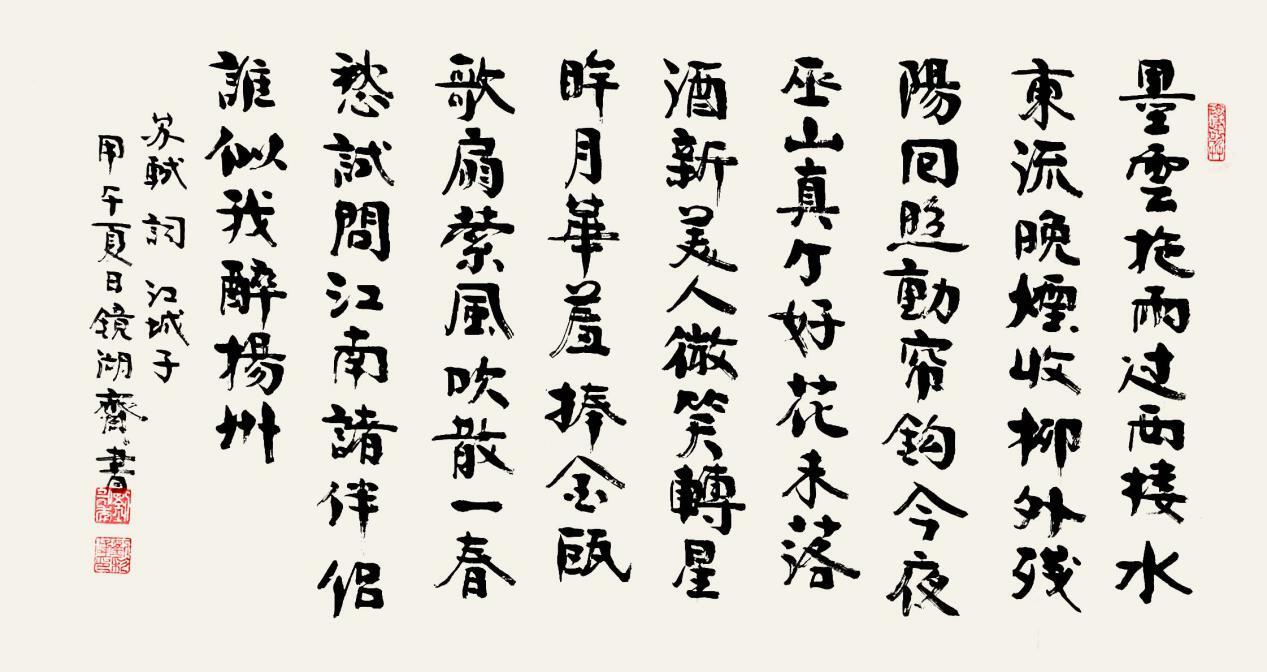 墨雲拖雨过西楼水
東流晚煙收柳外残
陽回照動帘鈎今夜
巫山真个好花未落
酒新美人微笑轉星
眸月華羞捧金瓯
歌扇縈風吹散一春
愁試問江南諸伴侣
誰似我醉揚州
苏軾 詞 江城子
甲午夏日鏡湖齋書